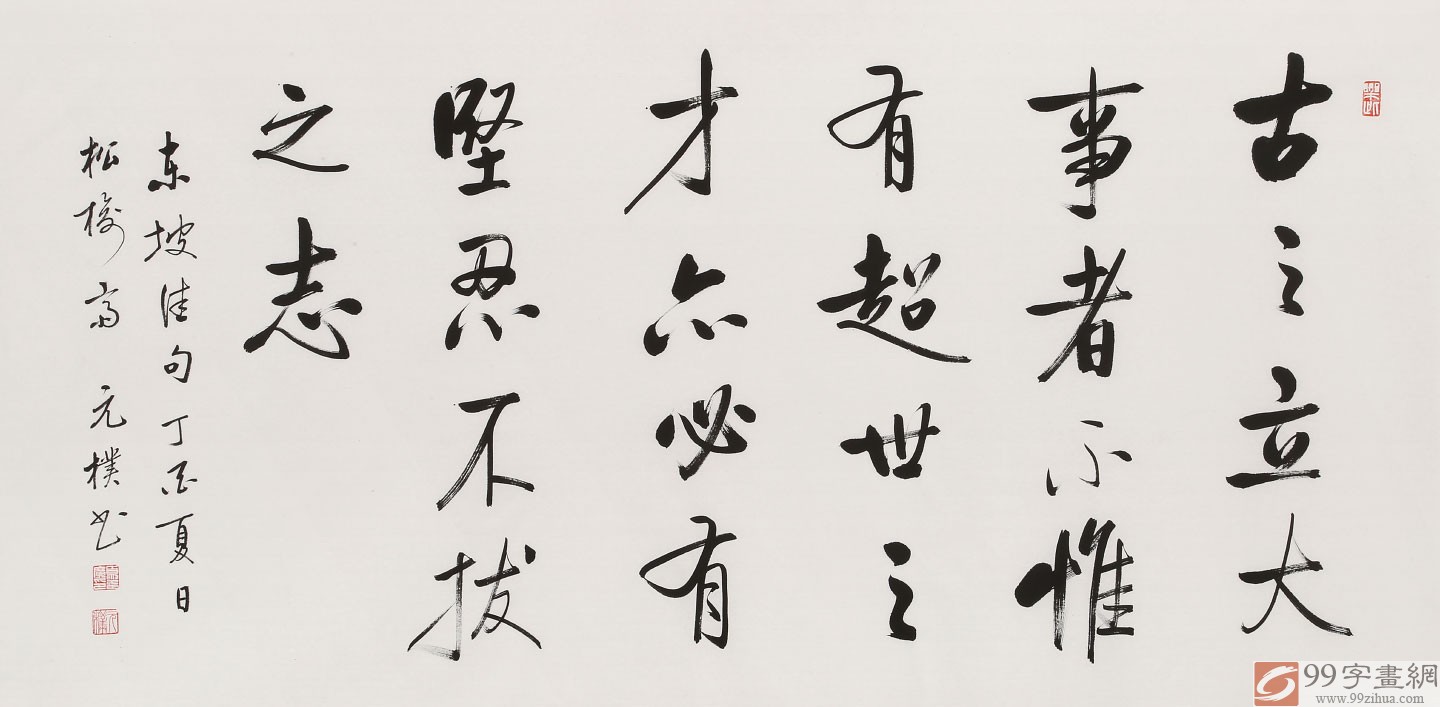 古之立大
事者不惟
有超世之
才亦必有
堅忍不拔
之志
東坡佳句丁酉夏日
松梅齋元樸书
99字畫網
www.99zihua.com